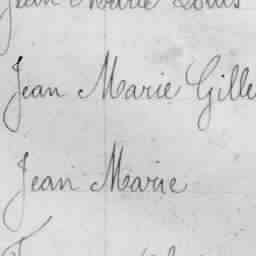 Jean Marie Louis
Jean Marie Gille
Jean Marie